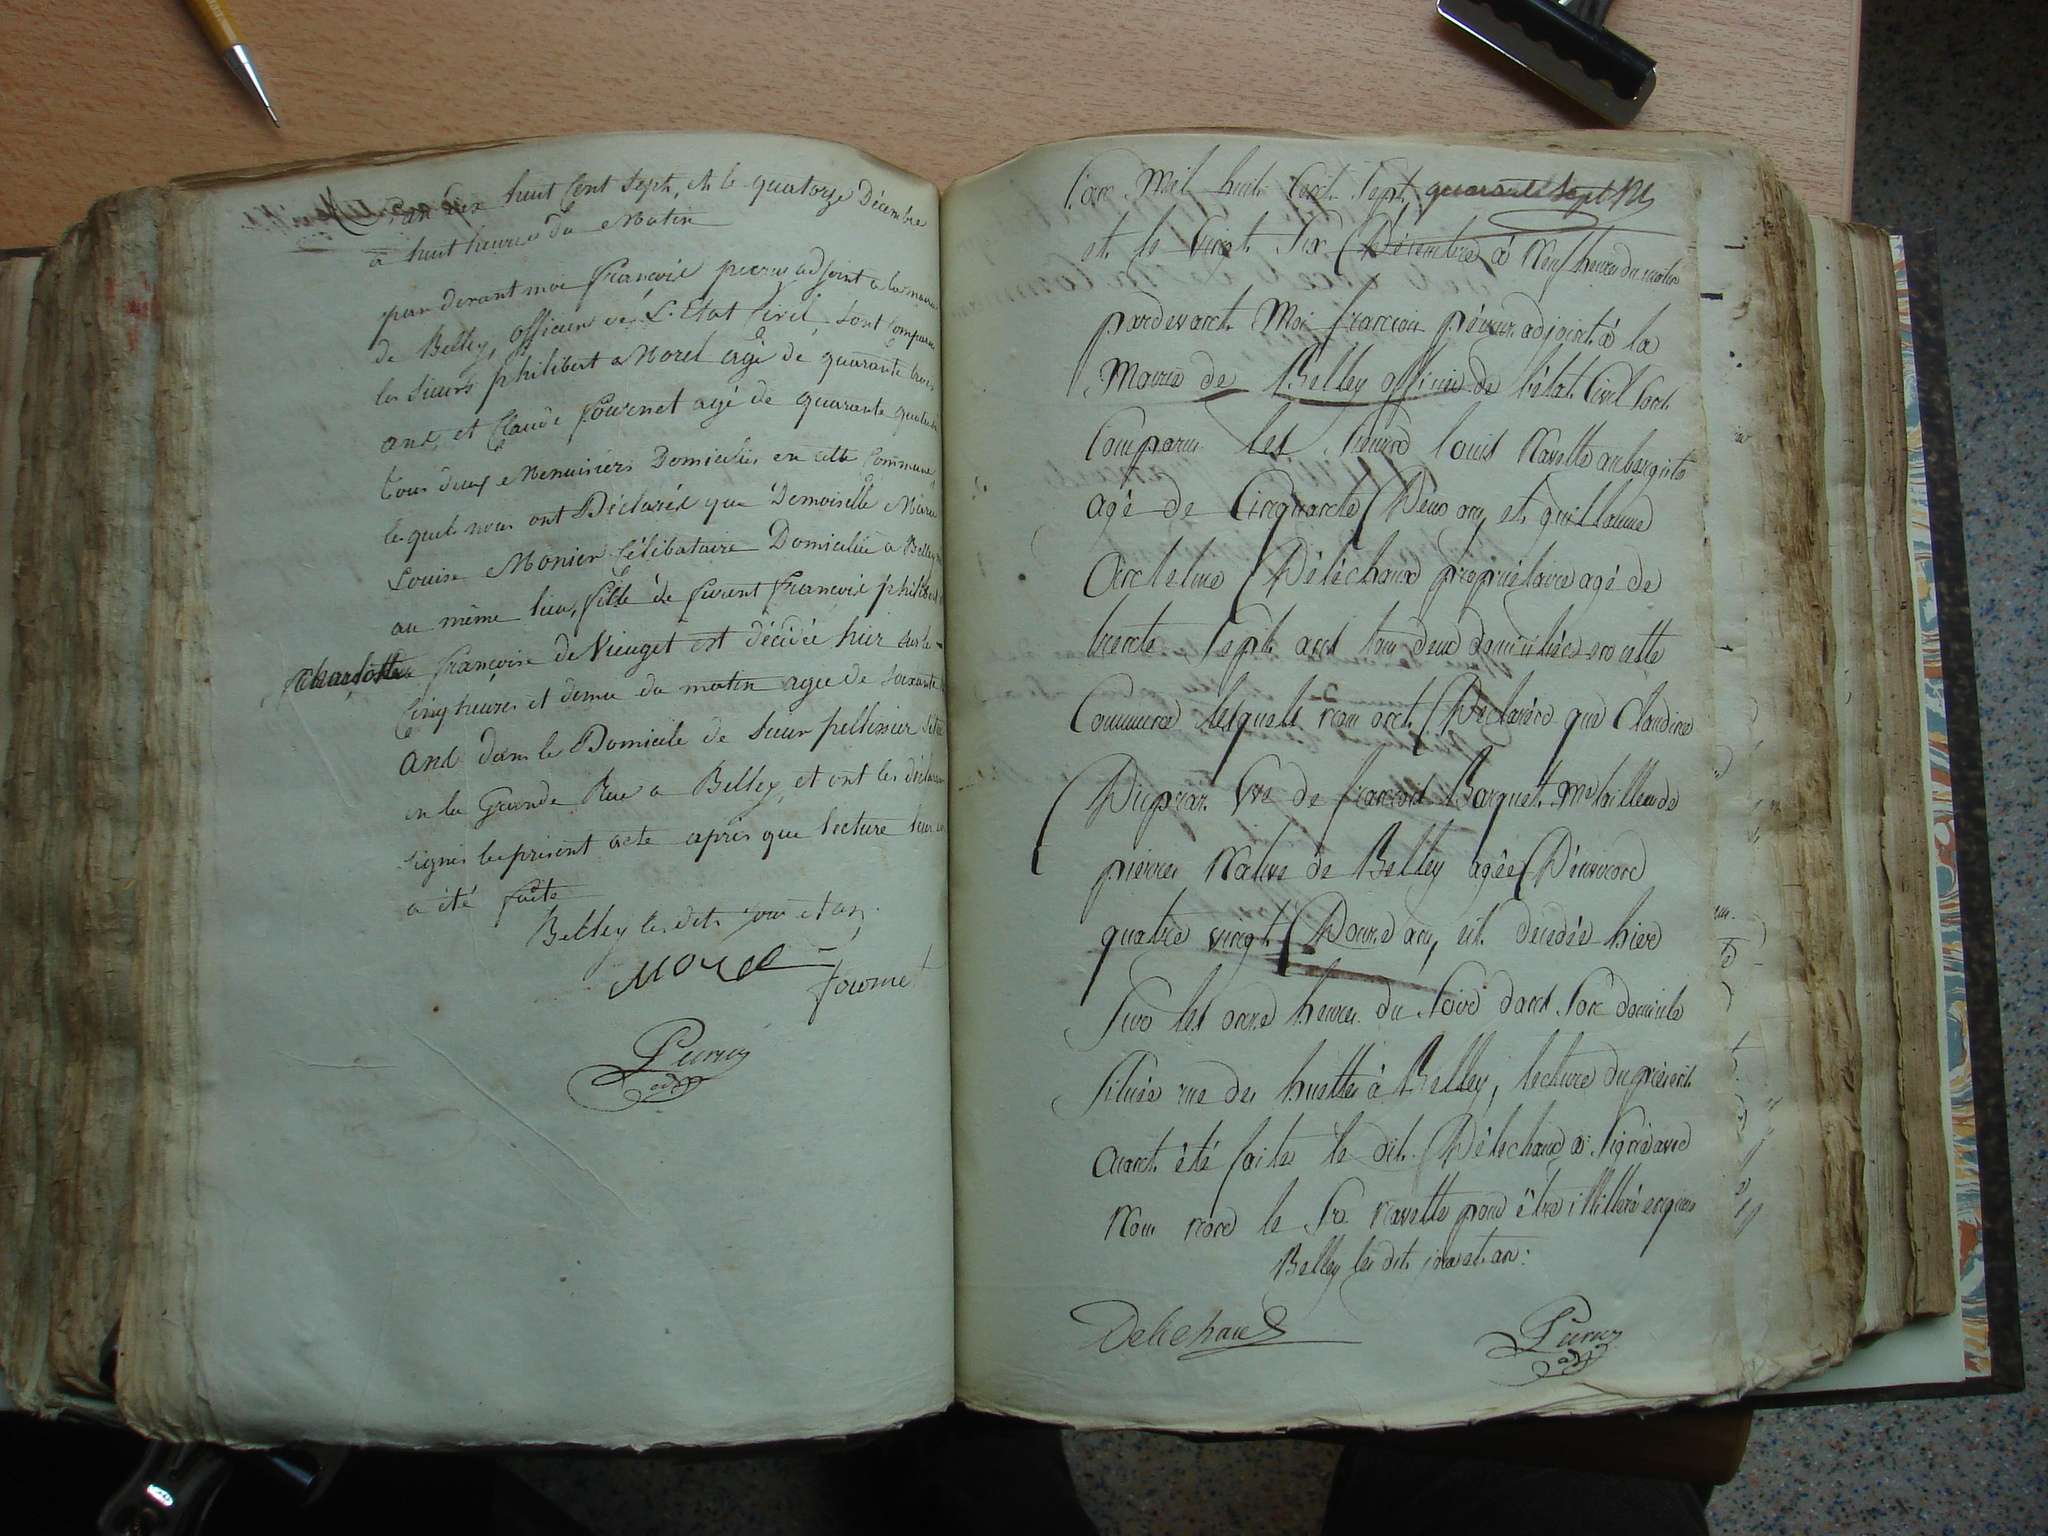 huit Cent Sept, et le quatorze Décembre
a huit heures du Matin
par devant moi françois adjoint a la mairie
de Belley, officier de L'Etat Civil, sont Comparu
les sieurs philibert Morel agé de quarante trois
ans, et Claude fournet agé de quarante quatre
tous deux Menuisiers Domiciliés en cette Commune
lequels nous ont Déclarés que Demoiselle Marie
Louise Monier Célibataire Domiciliée a Belley
au même lieu, fille de françois philibert
françoise de est décédée hier sur le
Cinq heures et demie du matin agée de soixante
ans dans le Domicile de sieur pellissier
en la Grande Rue a Belley, et ont les déclarans
signés le présent acte après que lecture leur en
a été faite
Belley les dits jour et an,
Morel
fournet
adj
l'an Mil huit Cent Sept, quarante sept
et le Vingt Six Décembre à Neuf heures du matin
pardevant Moi françois adjoint à la
Mairie de Belley officier de l'état Civil Sont
Comparus les Sieurs louis Navette aubergiste
agé de Cinquante Deux ans, et guillaume
Antelme Deléchaux propriétaire agé de
trente Sept ans tous deux domiciliés en cette
Commune lesquels nous ont Déclarés que Claudine
Vve de françois Barquet Me tailleur de
pierres Native de Belley agée D'environ
quatre vingt Douze ans, est décédée hier
Sur les onze heures du Soir dans Son domicile
Située rue des huettes à Belley, lecture du présent
ayant été faite le dit Deléchaux a Signé avec
Nous non le Sr Navette pour être illitéré enquis
Belley les dits jour et an:
Delechaux
adj